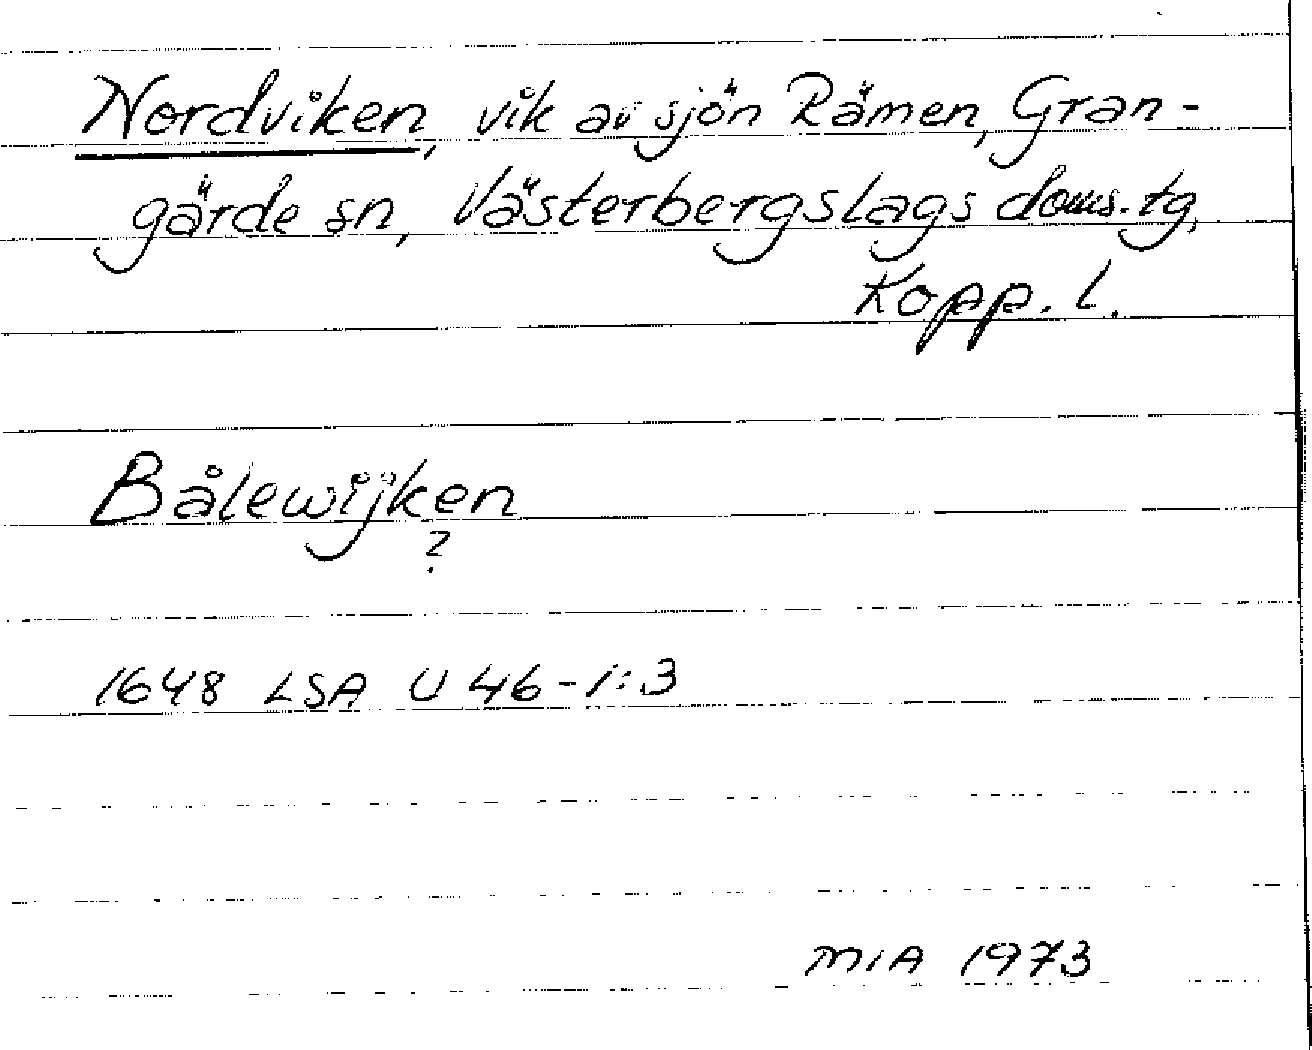 Nordviken, vik av sjön Rämen, Gran-
gärde sn, Västerbergslags doms. tg,
Kopp. l.
Bålewijken
?
1648 LSA U 46-1:3
MIA 1973